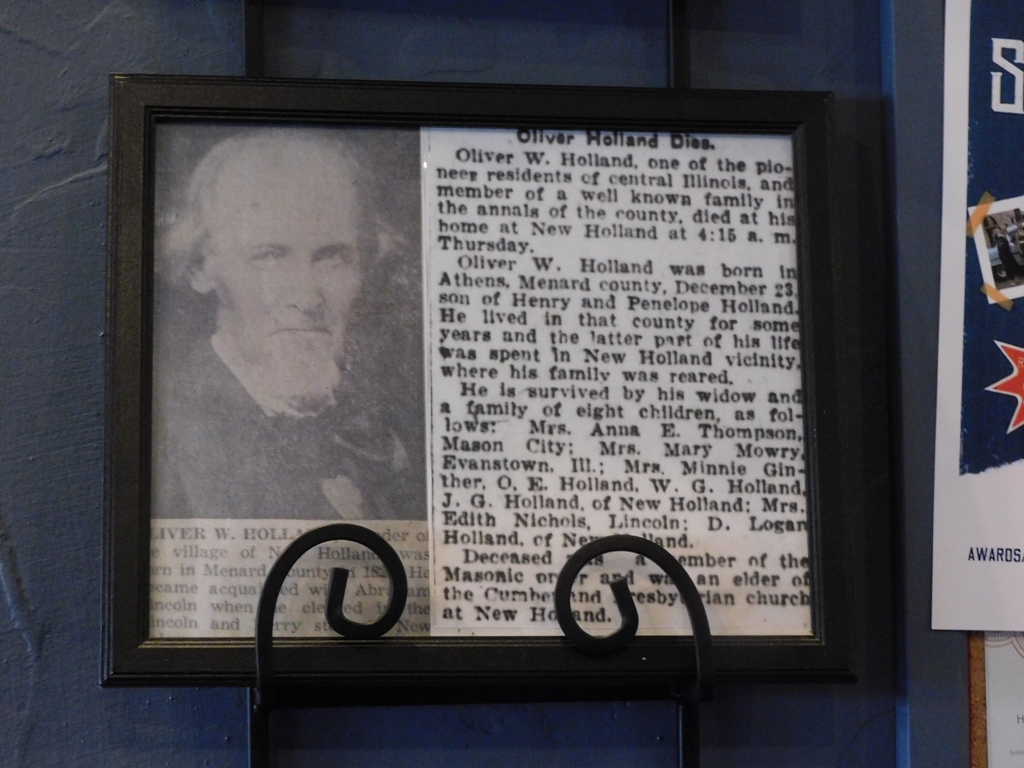 Oliver Holland Dies.
Oliver W. Holland, one of the pio-
neer residents of central Illinois, and
member of a well known family in
the annals of the county, died at his
home at New Holland at 4:15 a. m.
Thursday.
Oliver W. Holland was born in
Athens, Menard county, December 23,
son of Henry and Penelope Holland.
He lived in that county for some
years and the latter part of his life
was spent in New Holland vicinity,
where his family was reared.
He is survived by his widow and
a family of eight children, as fol-
lows: Mrs. Anna E. Thompson,
Mason City; Mrs. Mary Mowry,
Evanstown, Ill.; Mrs. Minnie Gin-
ther, O. E. Holland, W. G. Holland,
J. G. Holland, of New Holland; Mrs.
Edith Nichols, Lincoln; D. Logan
Holland, of New Holland.
Deceased was a member of the
Masonic order and was an elder of
the Cumberland Presbyterian church
at New Holland.
LIVER W. HOLLA der of
e village of New Holland was
rn in Menard county in He
came acquainted with Abraham
incoln when he clerked in the
incoln and Berry New
S
AWARDS
H